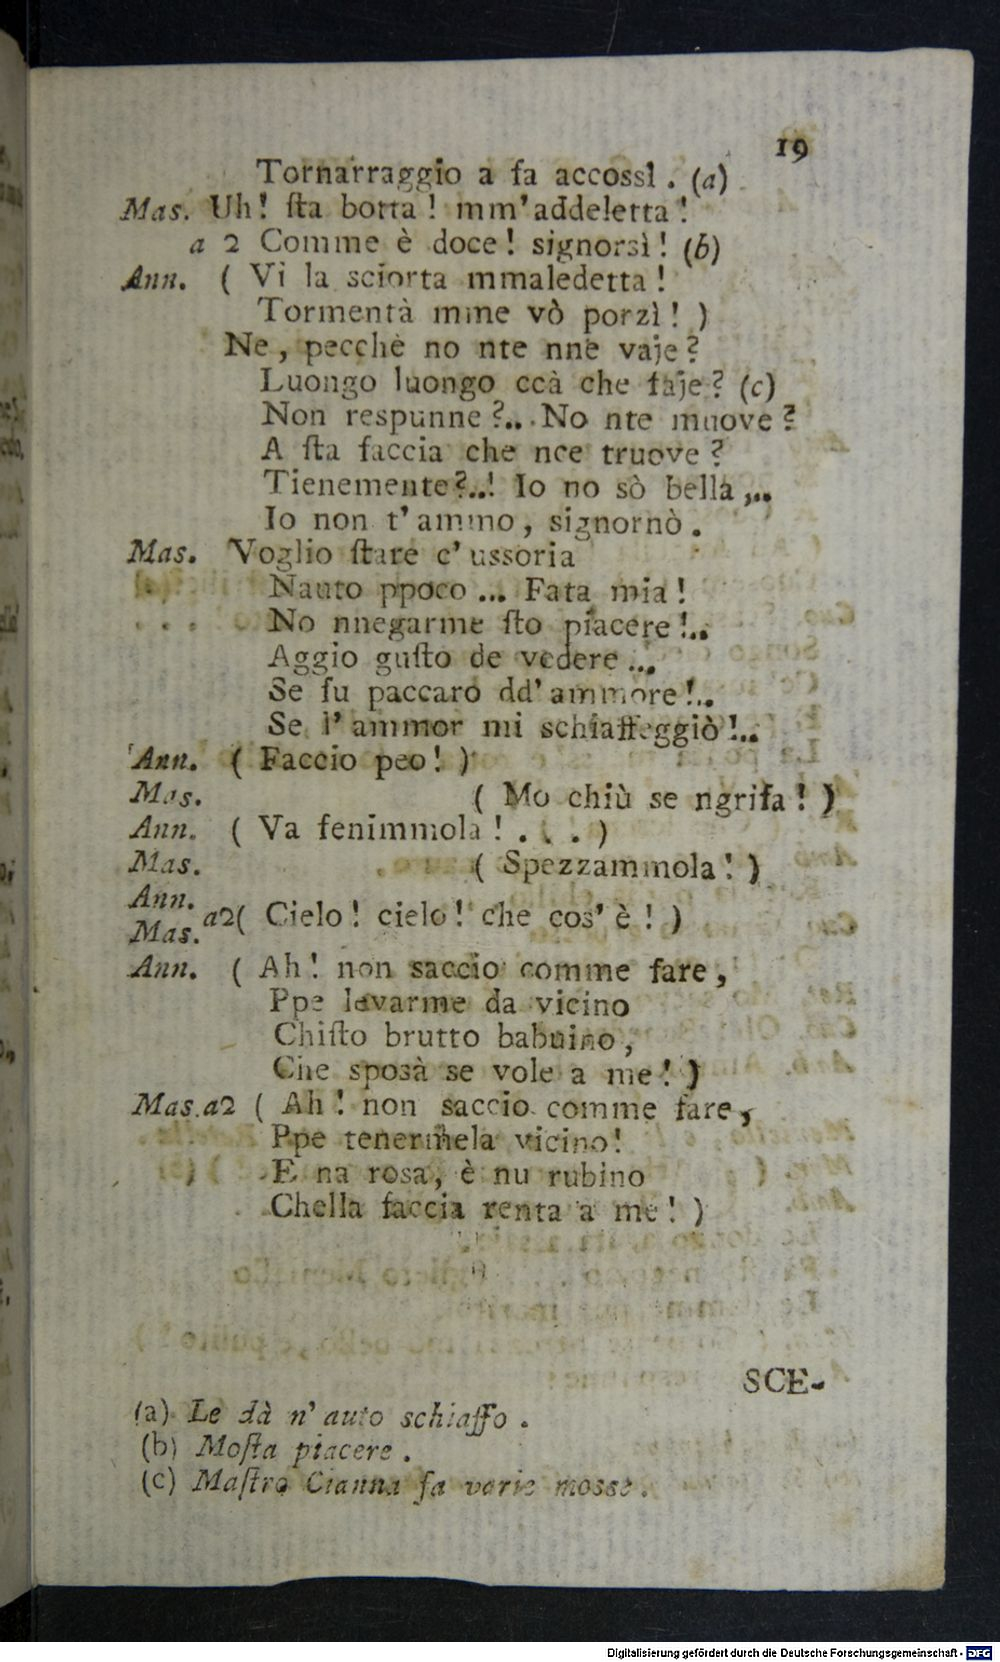 19
Tornarraggio a fa accossì . (a)
Mas. Uh! ſta botta! mm'addeletta!
a 2 Comme è doce! signorsì! (b)
Ann. ( Vi la sciorta mmaledetta!
Tormentà mme vò porzì! )
Ne, pecchè no nte nne vaje?
Luongo luongo ccà che faje? (c)
Non respunne?... No nte muove?
A ſta faccia che nce truove?
Tienemente?..! Io no sò bella,..
Io non t'ammo, signornò.
Mas. Voglio ſtare c'ussoria
Nauto ppoco... Fata mia!
No nnegarme ſto piacere!..
Aggio guſto de vedere...
Se fu paccaro dd'ammore!..
Se l'ammor mi schiaffeggiò!..
Ann. ( Faccio peo! )
Mas. ( Mo chiù se ngrifa! )
Ann. ( Va fenimmola! . . . )
Mas. ( Spezzammola! )
Ann.
Mas. a2( Cielo! cielo! che cos'è! )
Ann. ( Ah! non saccio comme fare,
Ppe levarme da vicino
Chiſto brutto babuino,
Che sposà se vole a me! )
Mas.a2 ( Ah! non saccio comme fare,
Ppe tenermela vicino!
E na rosa, è nu rubino
Chella faccia renta a me! )
SCE-
(a) Le dà n'auto schiaffo .
(b) Moſta piacere .
(c) Maſtro Cianna fa varie mosse .
Digitalisierung gefördert durch die Deutsche Forschungsgemeinschaft - DFG